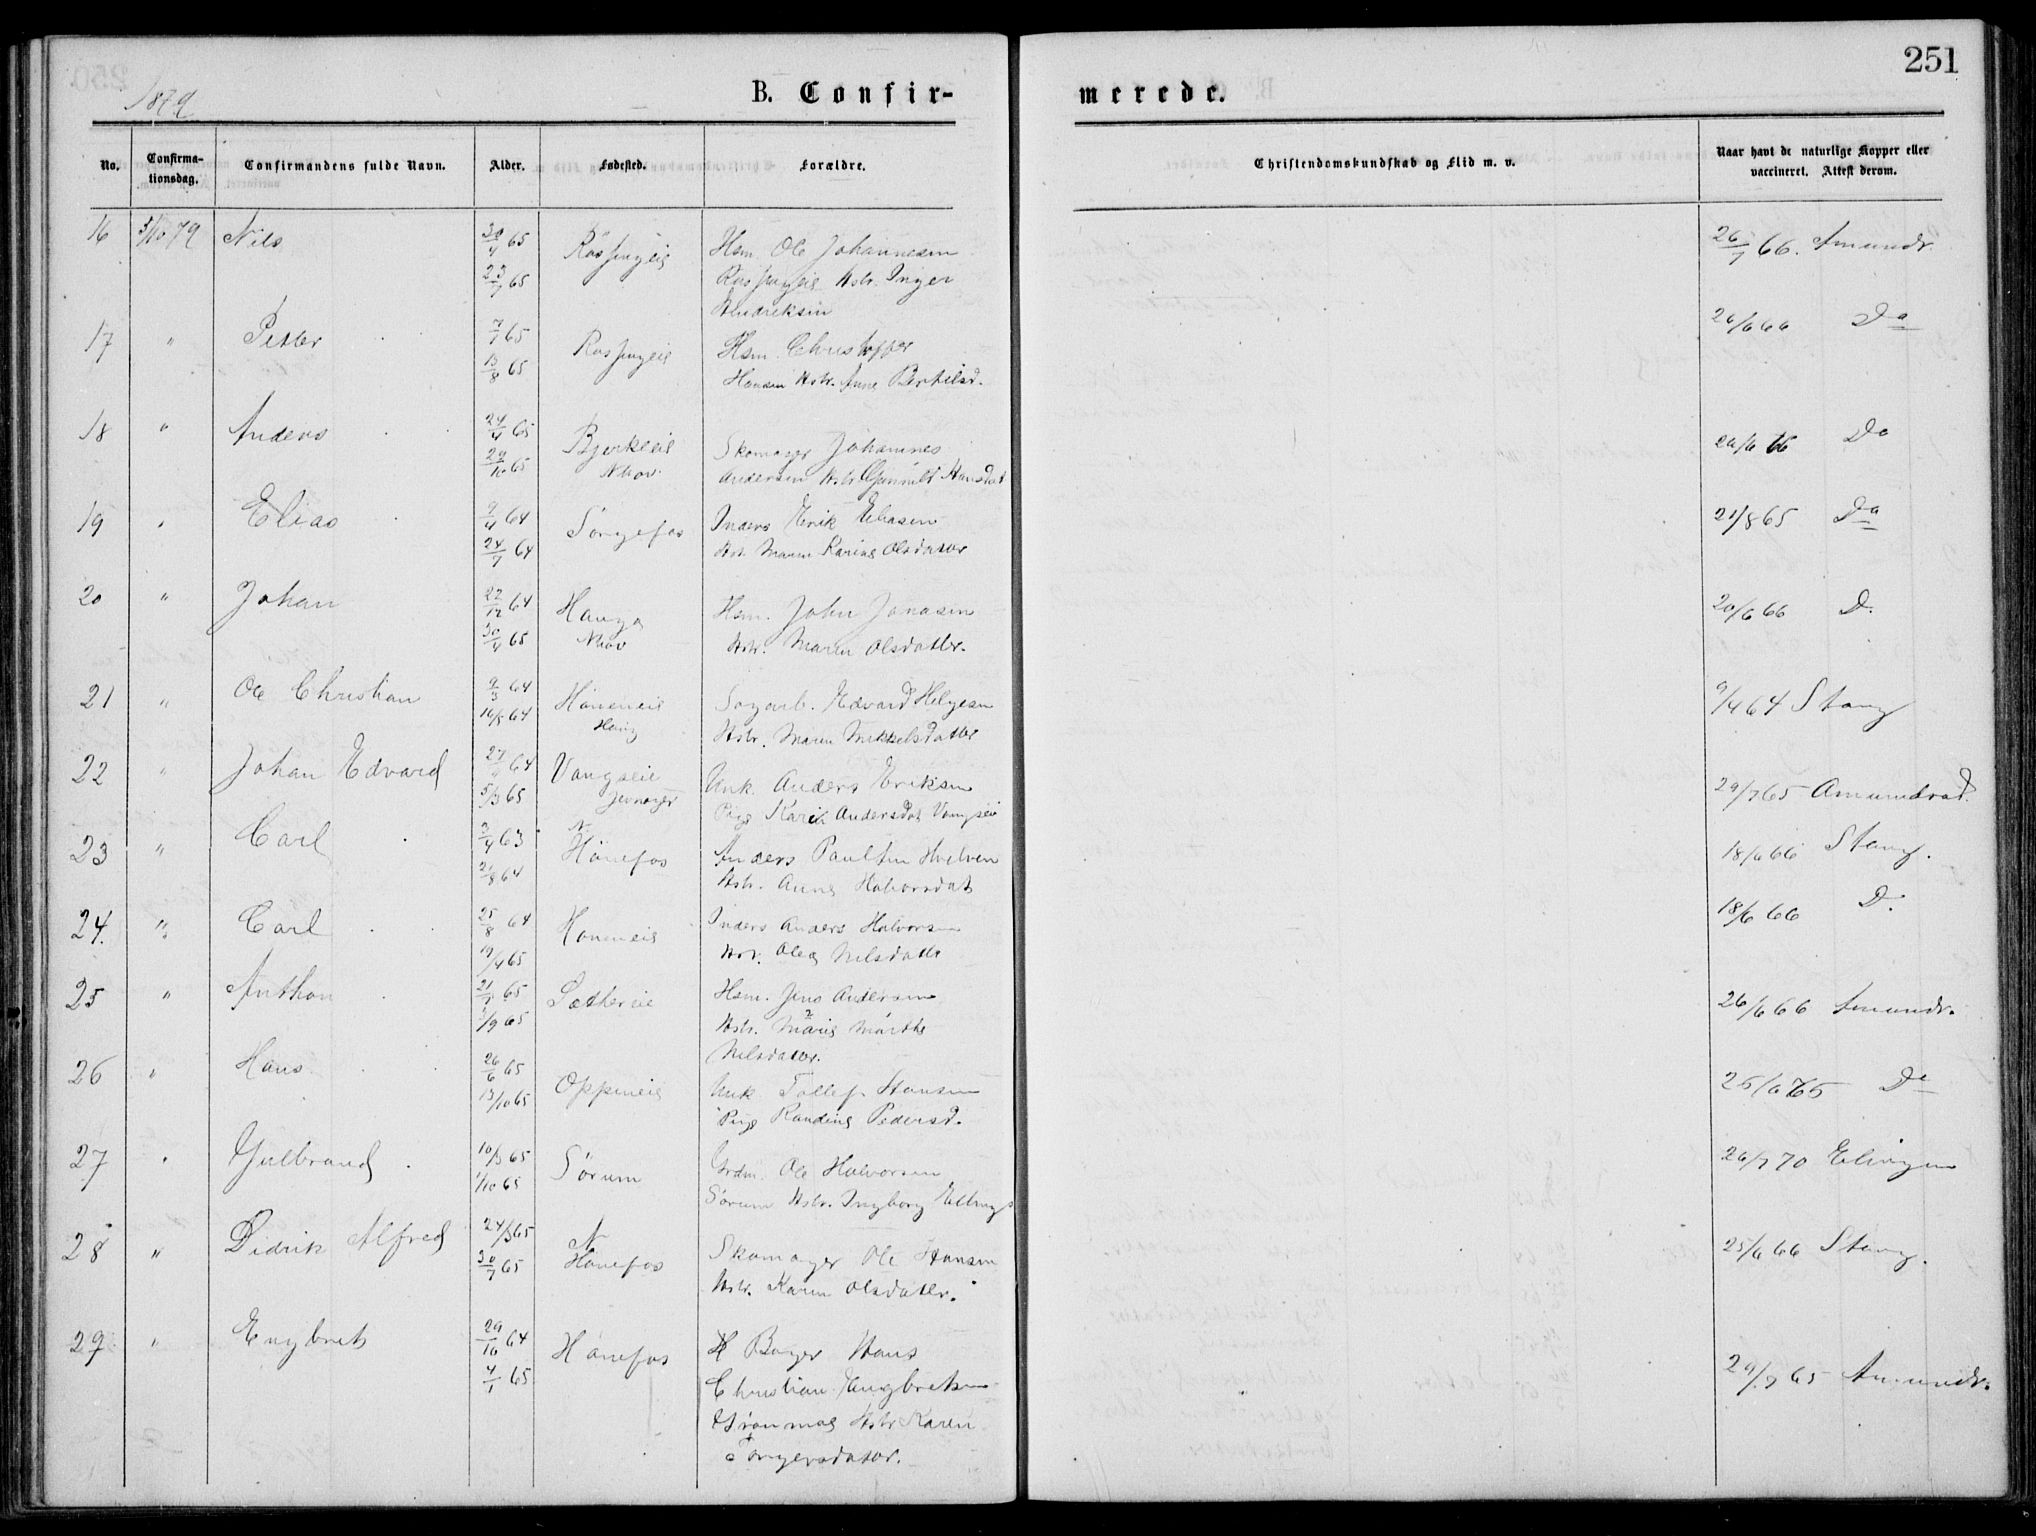 251
1879
B. Confir-
merede.
No.
Confirma-
tionsdag.
Confirmandens fulde Navn.
Alder.
Fødested.
Forældre.
Christendomskundskab og Flid m. v.
Naar havt de naturlige Kopper eller
vaccineret. Attest derom.
16 5/10 79 Nils 30/4 65 Hsm. Ole Johannesen 26/7 66. Amundr.
23/7 65 Hstr. Inger
Hendriksen
17 " Petter 7/7 65 Hsm. Christoffer 26/6 66 Do
13/8 65 Hansen Hstr. Anne Bertilsd.
18 " Anders 24/4 65 Bjerkeeie Skomager Johannes 26/6 66 Do
29/10 65 Nhov. Andersen Hstr Gunnild Hansdat
19 " Elias 9/4 64 Inders Erik Eliasen 21/8 65 Do
24/7 64 Hstr. Maren Karine Olsdatter
20 " Johan 22/12 64 Hsm. John Jonasen 20/6 66 D.
30/4 65 Nhov Hstr. Maren Olsdatter.
21 " Ole Christian 9/3 64 Høneneie Sagarb. Edvard Helgesen 9/4 64 Stang
16/5 64 Haug Hstr. Maren Mikkelsdatter
22 " Johan Edvard 64 Vangseie Unk. Anders Eriksen 29/7 65 Amundrud.
5/3 65 Jevnager Pige Kari Andersdat Vangseie
23 " Carl 3/4 63 N Hönefos Anders Paulsen Hvelven 18/6 66 Stang.
21/8 64 Hstr. Anne Halvorsdat
24. " Carl 25/8 64 Høneneie Inders Anders Halvorsen 18/6 66 D.
19/4 65 Hstr. Olea Nilsdatter
25 " Anthon 21/7 65 Sæthereie Hsm. Jens Andersen 26/6 66 Amundr.
65 Hstr. Marie Marthe
Nilsdatter.
26 " Hans 26/6 65 Oppeneie Unk Tollef Hansen Do
13/10 65 Pige Randine Pedersd.
27 " Gulbrand 10/3 65 Sørum Grdm. Ole Halvorsen 26/7 70 Ellingsen
1/10 65 Sørum Hstr. Ingborg Ellings
28 " Didrik Alfred 24/3 65 N Hönefos Skomager Ole Hansen 25/6 66 Stang.
30/7 65 Hstr. Karen Olsdatter.
29 " Engbret 29/10 64 Hönefos Bager Hans 29/7 65 Amundr.
4/1 65 Christian Engbretsen
Hstr Karen
Torgersdatter.